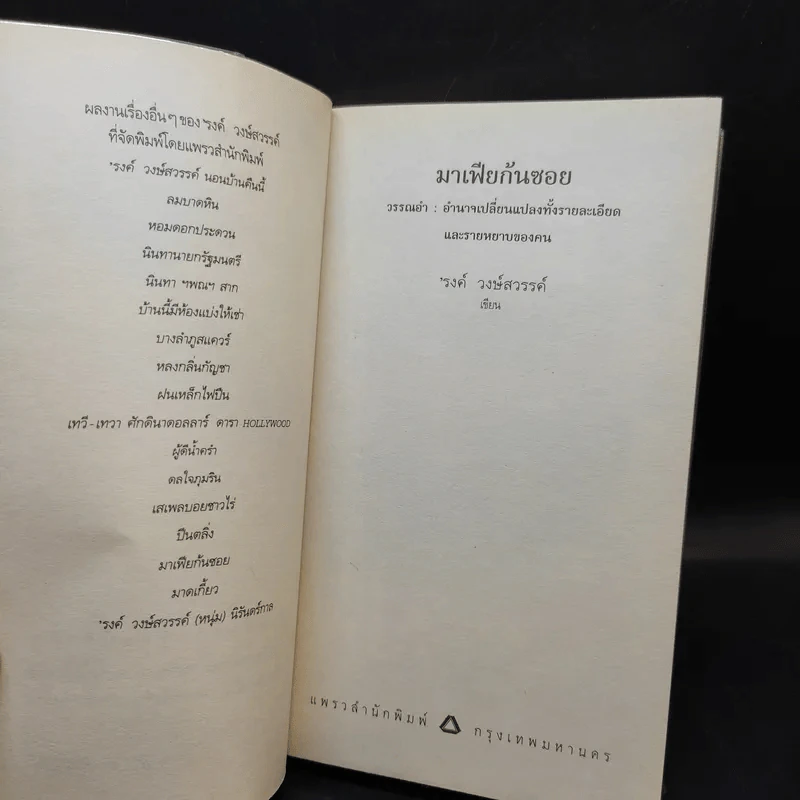 ผลงานเรื่องอื่นๆ ของ 'รงค์ วงษ์สวรรค์
ที่จัดพิมพ์โดยแพรวสำนักพิมพ์
'รงค์ วงษ์สวรรค์ นอนบ้านคืนนี้
ลมบาดหิน
หอมดอกประดวน
นินทานายกรัฐมนตรี
นินทา ฯพณฯ สาก
บ้านนี้มีห้องแบ่งให้เช่า
บางลำภูสแควร์
หลงกลิ่นกัญชา
ฝนเหล็กไฟปืน
เทวี-เทวา ศักดินาดอลลาร์ ดารา HOLLYWOOD
ผู้ดีน้ำครำ
ดลใจภุมริน
เสเพลบอยชาวไร่
ปีนตลิ่ง
มาเฟียก้นซอย
มาดเกี้ยว
'รงค์ วงษ์สวรรค์ (หนุ่ม) นิรันดร์กาล
มาเฟียก้นซอย
วรรณอำ : อำนาจเปลี่ยนแปลงทั้งรายละเอียด
และรายหยาบของคน
'รงค์ วงษ์สวรรค์
เขียน
แพรวสำนักพิมพ์ กรุงเทพมหานคร